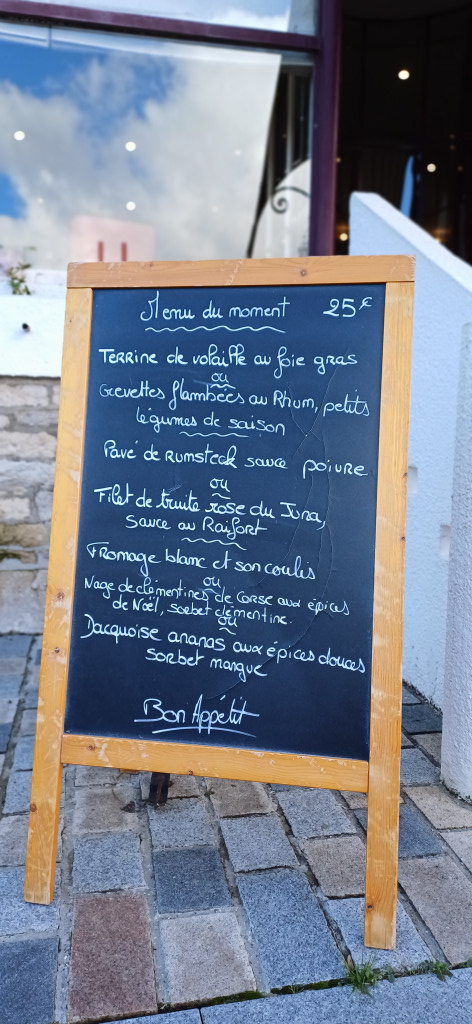 Menu du moment 25€
Terrine de volaille au foie gras
ou
Crevettes flambées au Rhum, petits
légumes de saison
Pavé de Rumsteck sauce poivre
ou
Filet de truite rose du Jura,
Sauce au Raifort
Fromage blanc et son coulis
ou
Nage de clémentines de Corse aux épices
de Noël, sorbet clémentine.
ou
Dacquoise ananas aux épices douces
sorbet mangue
Bon Appétit